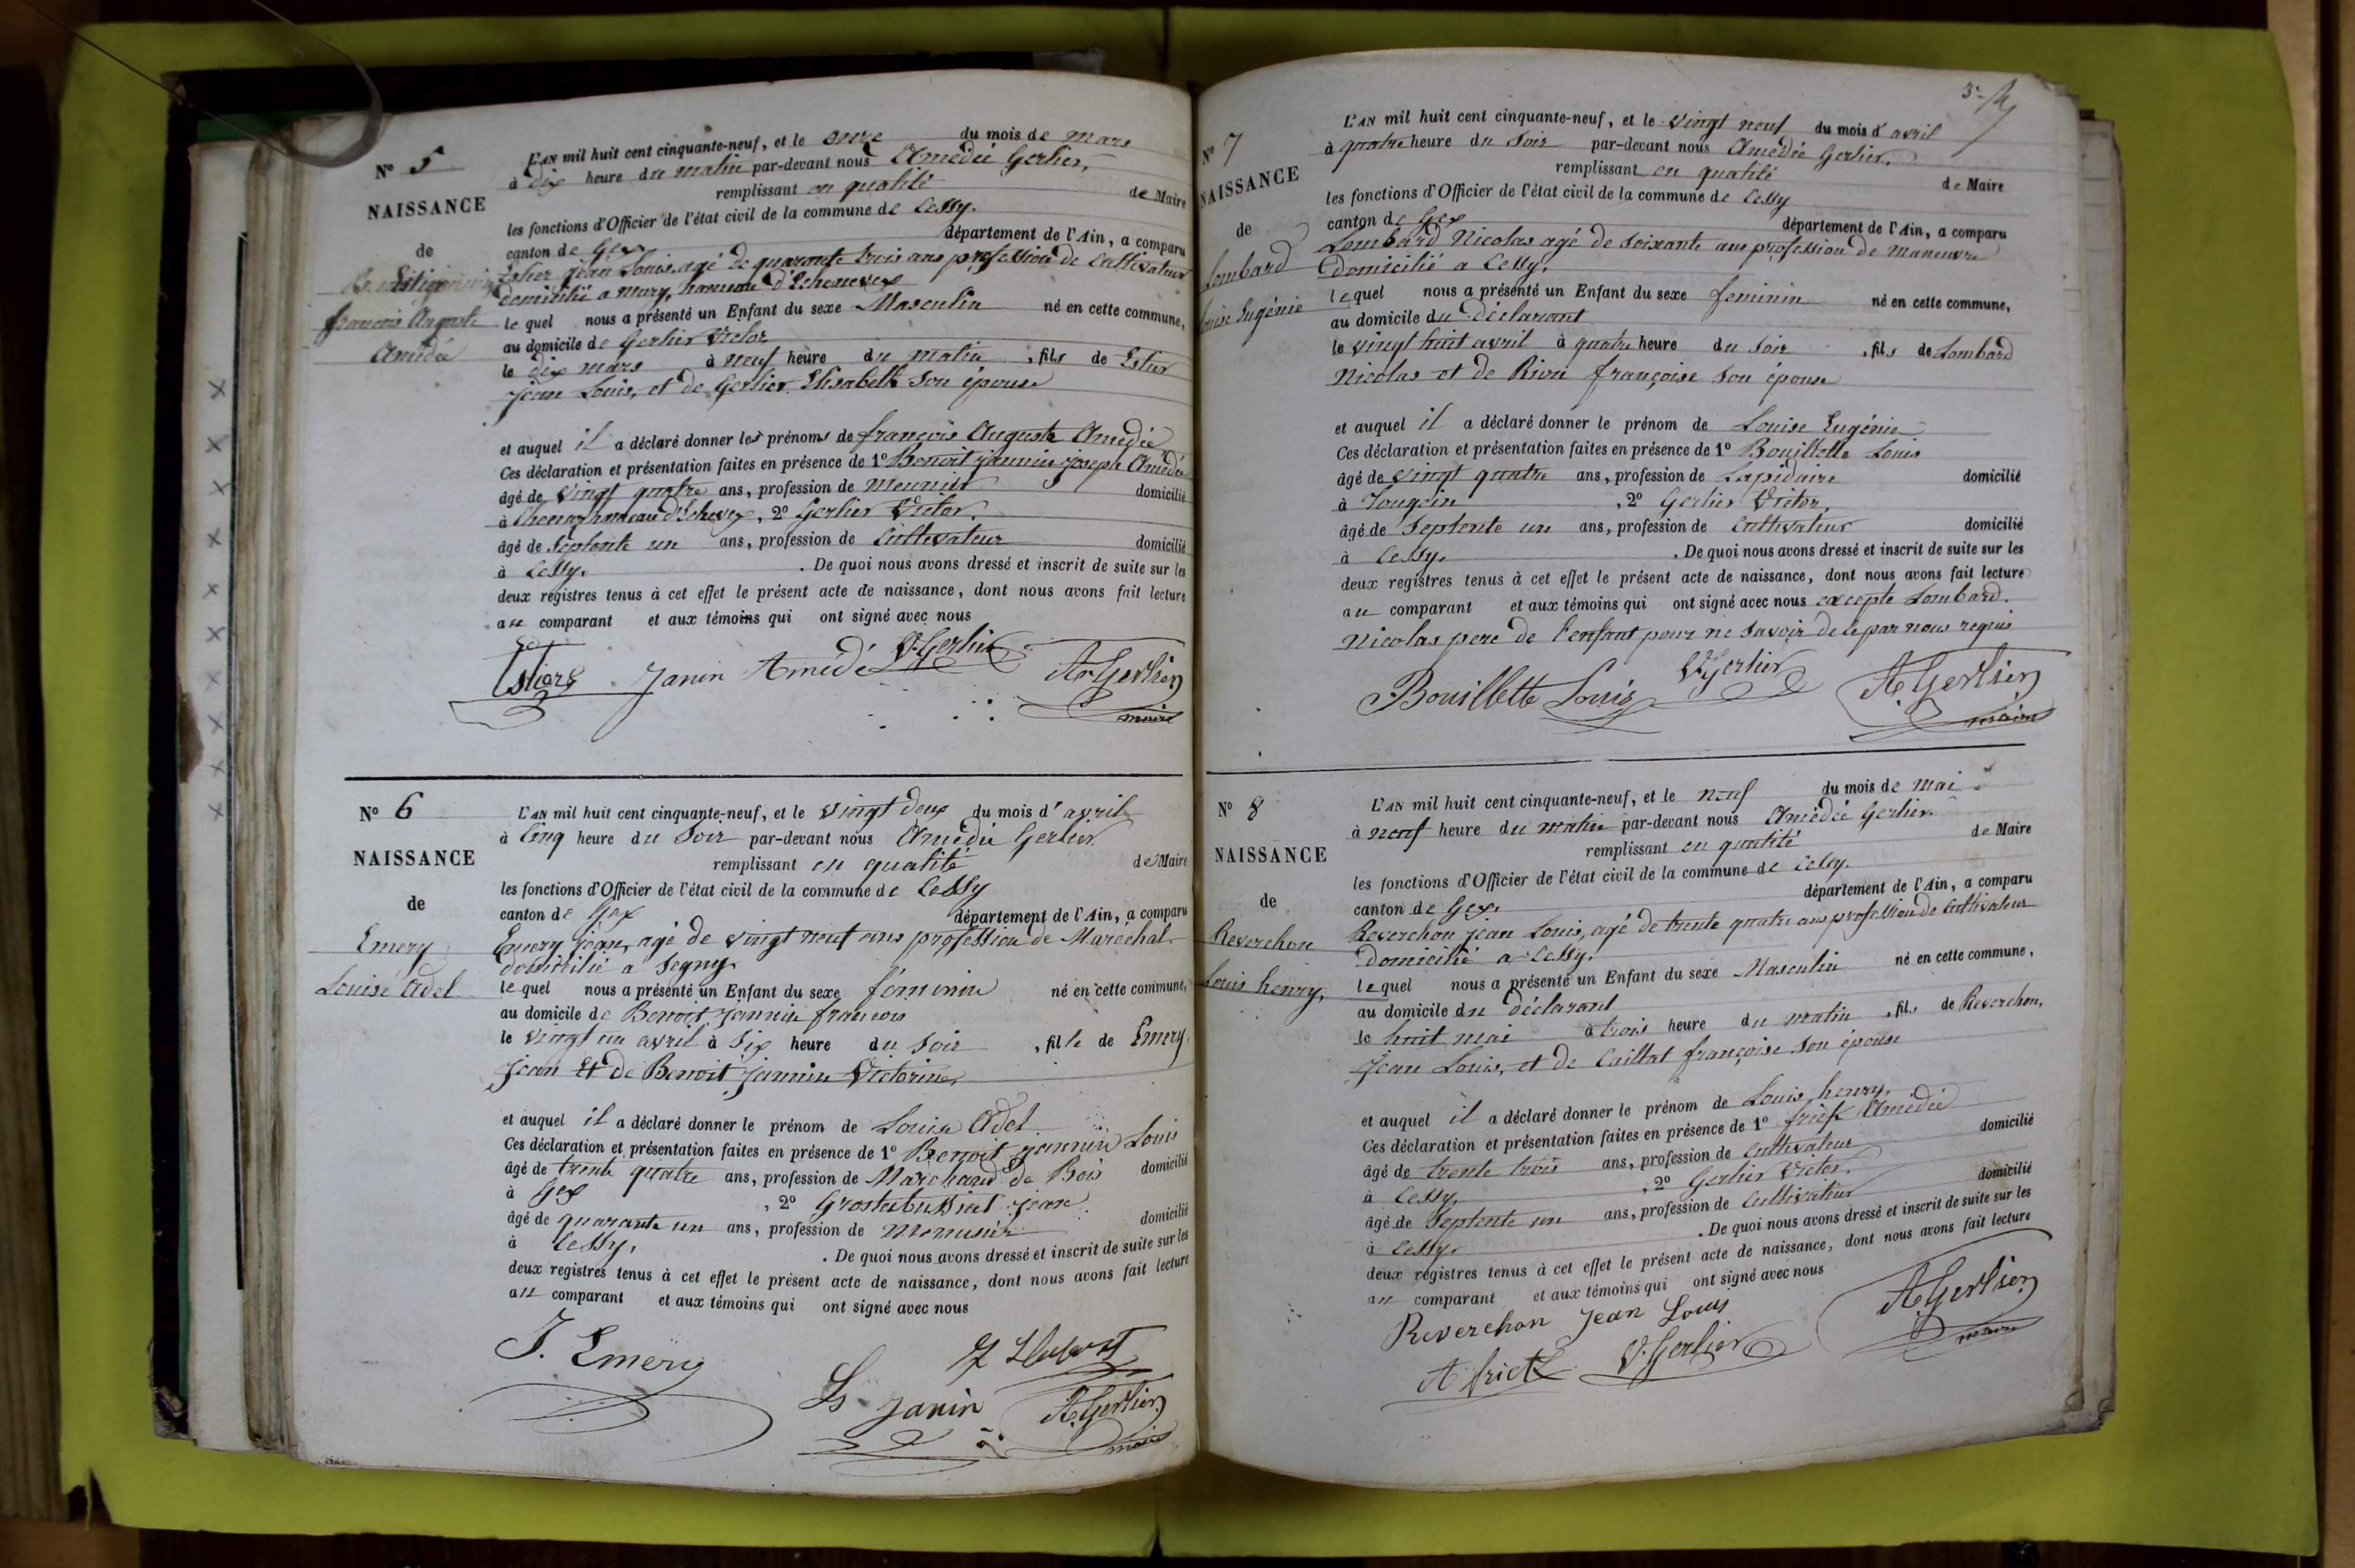 Nº 5
NAISSANCE
de
françois Auguste
Amédée
L'AN mil huit cent cinquante-neuf, et le onze du mois de mars
à dix heure du matin par-devant nous Amédée Gerlier,
remplissant en qualité de Maire
les fonctions d'Officier de l'état civil de la commune de Cessy.
canton de Gex département de l'Ain, a comparu
jean Louis, agé de quarante trois ans profession de Cultivateur
domicilié a mury, hameau d'Echenevex
le quel nous a présenté un Enfant du sexe Masculin né en cette commune,
au domicile de Gerlier Victor
le dix mars à neuf heure du matin , fils de
jean Louis, et de Gerlier Elisabeth son épouse
et auquel il a déclaré donner les prénoms de françois Auguste Amédée
Ces déclaration et présentation faites en présence de 1º Benoit jannin joseph Amédée
âgé de vingt quatre ans, profession de Meunier domicilié
à hameau d' , 2º Gerlier Victor,
âgé de septente un ans, profession de Cultivateur domicilié
à Cessy. . De quoi nous avons dressé et inscrit de suite sur les
deux registres tenus à cet effet le présent acte de naissance, dont nous avons fait lecture
au comparant et aux témoins qui ont signé avec nous
Janin Amédé V. Gerlier A. Gerlier
maire
Nº 6
NAISSANCE
de
Emery
Louise Adel
L'AN mil huit cent cinquante-neuf, et le vingt deux du mois d'avril
à Cinq heure du Soir par-devant nous Amédée Gerlier.
remplissant en qualité de Maire
les fonctions d'Officier de l'état civil de la commune de Cessy
canton de Gex département de l'Ain, a comparu
Emery jean, agé de vingt neuf ans profession de Maréchal
domicilié a Segny
le quel nous a présenté un Enfant du sexe féminin né en cette commune,
au domicile de Benoit Jannin françois
le vingt un avril à Six heure du Soir , fille de Emery
jean Et de Benoit jannin Victorine,
et auquel il a déclaré donner le prénom de Louise Adel
Ces déclaration et présentation faites en présence de 1º Benoit jannin Louis
âgé de trente quatre ans, profession de Marchand de Bois domicilié
à Gex , 2º jean.
âgé de quarante un ans, profession de Menusier domicilié
à Cessy, . De quoi nous avons dressé et inscrit de suite sur les
deux registres tenus à cet effet le présent acte de naissance, dont nous avons fait lecture
au comparant et aux témoins qui ont signé avec nous
J. Emery
Ls Janin A. Gerlier
maire
Nº 7
NAISSANCE
de
Lombard
Louise Eugénie
L'AN mil huit cent cinquante-neuf, et le vingt neuf du mois d'avril
à quatre heure du Soir par-devant nous Amédée Gerlier,
remplissant en qualité de Maire
les fonctions d'Officier de l'état civil de la commune de Cessy
canton de Gex département de l'Ain, a comparu
Lombard Nicolas agé de soixante ans profession de Maneuvre
domicilié a Cessy.
le quel nous a présenté un Enfant du sexe feminin né en cette commune,
au domicile du déclarant
le vingt huit avril à quatre heure du Soir , fils de Lombard
Nicolas et de françoise son épouse
et auquel il a déclaré donner le prénom de Louise Eugénie
Ces déclaration et présentation faites en présence de 1º Bouillette Louis
âgé de vingt quatre ans, profession de Lapidaire domicilié
à Tougin , 2º Gerlier Victor,
âgé de Septente un ans, profession de Cultivateur domicilié
à Cessy. . De quoi nous avons dressé et inscrit de suite sur les
deux registres tenus à cet effet le présent acte de naissance, dont nous avons fait lecture
au comparant et aux témoins qui ont signé avec nous excepte Lombard.
Nicolas pere de l'enfant pour ne savoir de ce par nous requis
Bouillette Louis V. Gerlier A. Gerlier
maire
Nº 8
NAISSANCE
de
Reverchon
Louis henry,
L'AN mil huit cent cinquante-neuf, et le neuf du mois de mai
à neuf heure du matin par-devant nous Amédée Gerlier.
remplissant en qualité de Maire
les fonctions d'Officier de l'état civil de la commune de Cessy.
canton de Gex. département de l'Ain, a comparu
Reverchon jean Louis, agé de trente quatre ans profession de Cultivateur
domicilié a Cessy.
le quel nous a présenté un Enfant du sexe Masculin né en cette commune,
au domicile du déclarant
le huit mai à trois heure du matin , fils de Reverchon,
jean Louis, et de Caillat françoise son épouse
et auquel il a déclaré donner le prénom de Louis henry,
Ces déclaration et présentation faites en présence de 1º frick Amédée
âgé de trente trois ans, profession de Cultivateur domicilié
à Cessy , 2º Gerlier Victor.
âgé de Septente un ans, profession de Cultivateur domicilié
à Cessy. . De quoi nous avons dressé et inscrit de suite sur les
deux registres tenus à cet effet le présent acte de naissance, dont nous avons fait lecture
au comparant et aux témoins qui ont signé avec nous
Reverchon Jean Louis A. Gerlier
A frick V. Gerlier maire